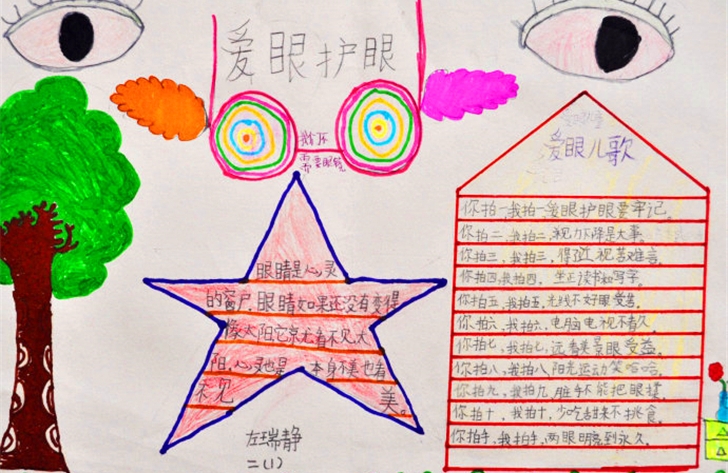 爱眼护眼
需要眼镜
眼睛是心灵
的窗户,眼睛如果还没有变得
像太阳,它就看不见太
阳,心灵也是,本身不美也看
不见 美。
左瑞静
二(1)
爱眼儿歌
你拍一,我拍一,爱眼护眼要牢记。
你拍二,我拍二,视力下降是大事。
你拍三,我拍三,得了近视苦难言。
你拍四,我拍四,坐正读书和写字。
你拍五,我拍五,光线不好眼受害。
你拍六,我拍六,电脑电视不看久。
你拍七,我拍七,远看美景眼受益。
你拍八,我拍八,阳光运动笑哈哈。
你拍九,我拍九,脏手不能把眼揉。
你拍十,我拍十,少吃甜来不挑食。
你拍手,我拍手,两眼明亮到永久。